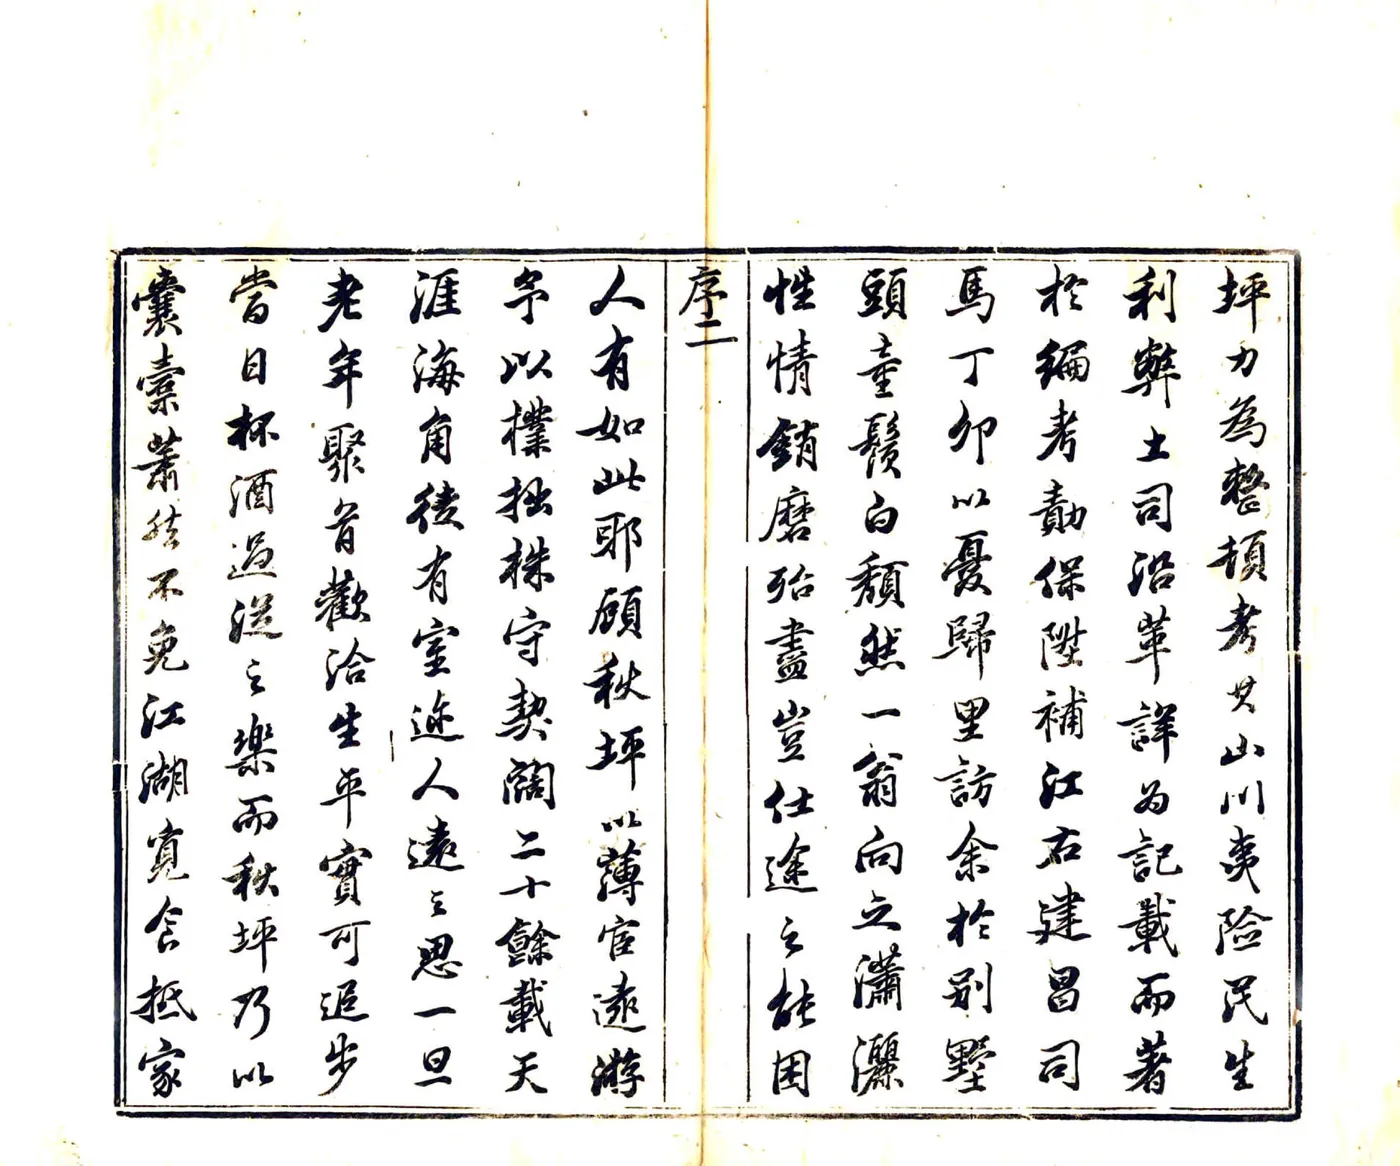 坪力為整頓考其山川夷險民生
利弊土司沿革詳為記載而著
於編考勣保陞補江右建昌司
馬丁卯以憂歸里訪余於別墅
頭童鬚白頹然一翁向之瀟灑
性情銷磨殆盡豈仕途之能困
序二
人有如此耶顧秋坪以薄宦遠游
予以樸拙株守契闊二十餘載天
涯海角後有室邇人遠之思一旦
老年聚首歡洽生平實可追步
當日杯酒過從之樂而秋坪乃以
囊橐蕭然不免江湖寬食抵家